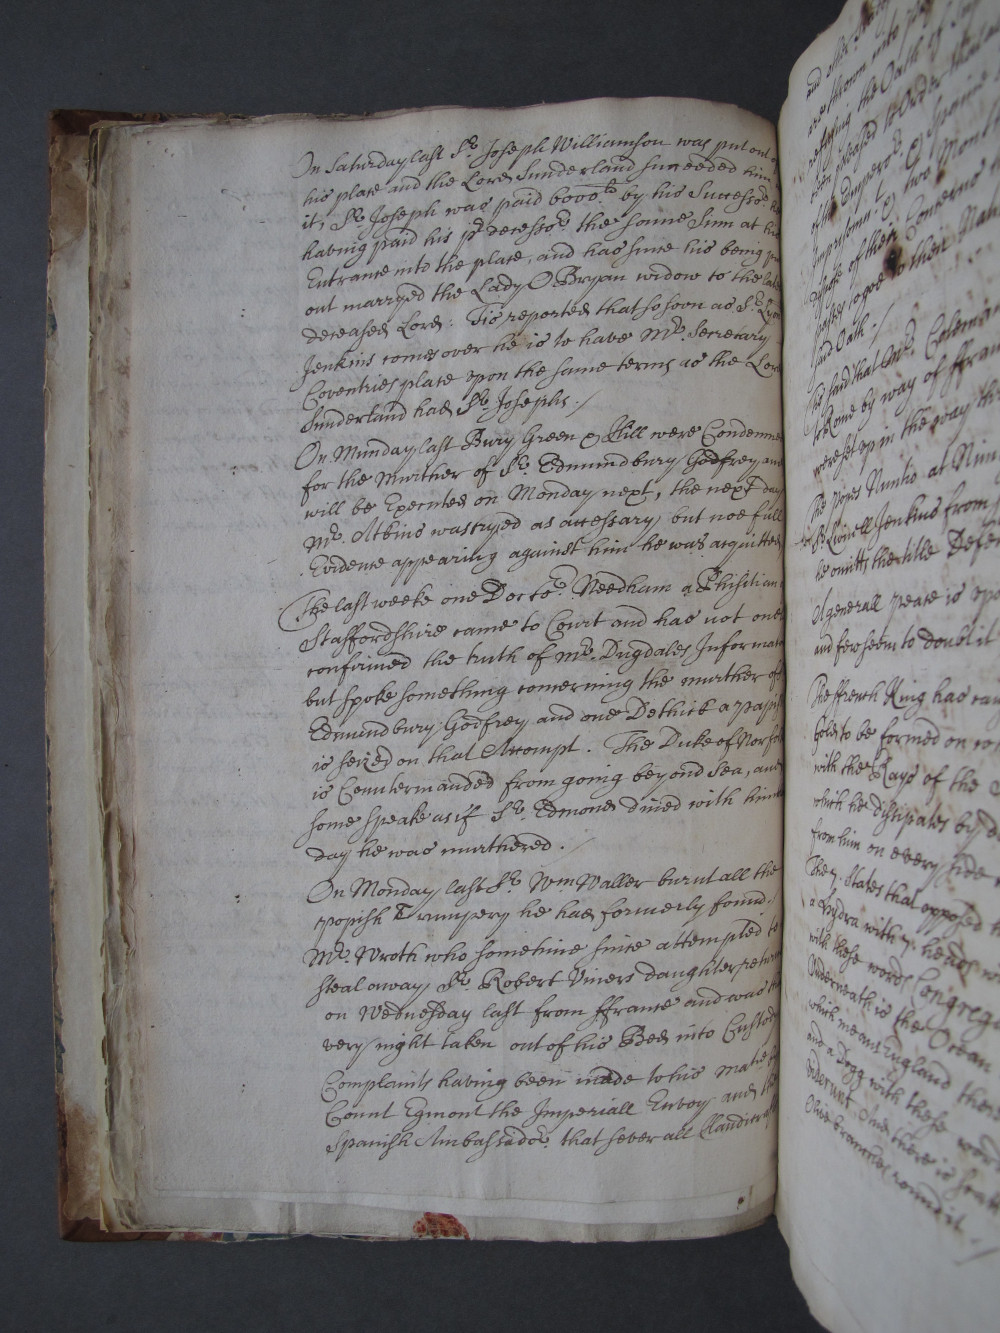 On Saturday last Sr. Joseph Williamson was put out of
his place and the Lord Sunderland succeeded him
it, Sr. Joseph was paid 6000li. by his Successor
having paid his prdecessor the same Sum at his
Entrance into the place, and has since his being
out marryed the Lady O Bryan widow to the late
deceased Lord: Tis reported that so soon as Sr.
Jenkins comes over he is to have Mr. Secretary
Coventries place upon the same terms as the Lord
Sunderland had Sr. Josephs. /
On Munday last Bury Green & Hill were Condemned
for the Murther of Sr. Edmundbury Godfrey and
will be Executed on Monday next, the next day
Mr. Atkins was tryed as accessary, but noe full
Evidence appearing against him he was acquitted
The last weeke one Doctor. Needham a Phisitian
Staffordshire came to Court and has not onely
confirmed the truth of Mr. Dugdales Informat
but spoke something concerning the murther of
Edmundbury Godfrey and one Dethick a papist
is seized on that Accompt. The Duke of Norfolk
is Countermanded from going beyond Sea, and
some speake as if Sr. Edmond dined with him
day he was murthered. /
On Monday last Sr. Wm Waller burnt all the
popish Trumpery he had formerly found. /
Mr. Wroth who sometime since attempted to
steal away Sr. Robert Viners daughter return
on Wednesday last from fFrance and was
very night taken out of his Bed into Custody
Complaints having been made to his Matie
Count Egmont the Imperiall Envoy and the
Spanish Ambassador. that severall
and other
are thrown into
refusing the Oath of
been pleased to Order that
of the Emperor. & Spanish
Imprisonmt. & two Months
dispose of their Concerns
passes to goe to their Nati
said Oath. /
Tis said that Mr. Colem
to Rome by way of fFran
were set up in the way
The Popes Nuntio at Nim
Sr. Lionell Jenkins from
he omitts the title Defen
A generall peace is
and few seem to doubt it
The fFrench King has
Gold to be formed on
with the Rays of the
which he dissipates by
from him on every side
The 7. States that opposed
a Hydra with 7. heads
with these words Congrega
Underneath is the Ocean
which means England
and a Dogg with these word
And there is
Olive branches round it. /